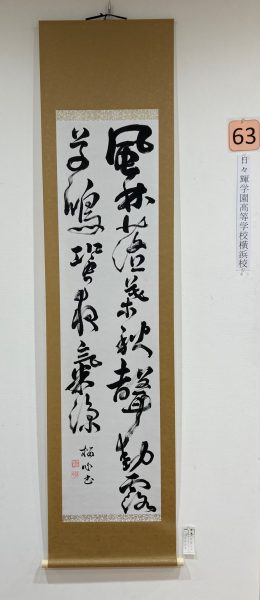 風林落葉秋聲動露
草鳴蛩夜氣涼
63
日々輝学園高等学校横浜校